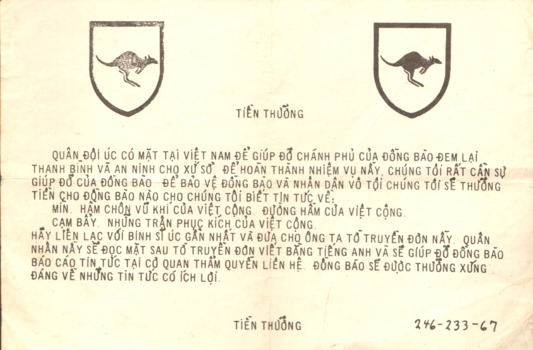 TIỀN THƯỞNG
QUÂN ĐỘI ÚC CÓ MẶT TẠI VIỆT NAM ĐỂ GIÚP ĐỠ CHÁNH PHỦ CỦA ĐỒNG BÀO ĐEM LẠI
THANH BÌNH VÀ AN NINH CHO XỨ SỞ ĐỂ HOÀN THÀNH NHIỆM VỤ NẦY, CHÚNG TÔI RẤT CẦN SỰ
GIÚP ĐỠ CỦA ĐỒNG BÀO ĐỂ BẢO VỆ ĐỒNG BÀO VÀ NHÂN DÂN VÔ TỘI CHÚNG TÔI SẼ THƯỞNG
TIỀN CHO ĐỒNG BÀO NÀO CHO CHÚNG TÔI BIẾT TIN TỨC VỀ:
MÌN. HẦM CHÔN VŨ KHÍ CỦA VIỆT CỘNG. ĐƯỜNG HẦM CỦA VIỆT CỘNG.
CẠM BẪY. NHỮNG TRẬN PHỤC KÍCH CỦA VIỆT CỘNG.
HÃY LIÊN LẠC VỚI BINH SĨ ÚC GẦN NHẤT VÀ ĐƯA CHO ÔNG TA TỜ TRUYỀN ĐƠN NẦY. QUÂN
NHÂN NẦY SẼ ĐỌC MẶT SAU TỜ TRUYỀN ĐƠN VIẾT BẰNG TIẾNG ANH VÀ SẼ GIÚP ĐỠ ĐỒNG BÀO
BÁO CÁO TIN TỨC TẠI CƠ QUAN THẨM QUYỀN LIÊN HỆ. ĐỒNG BÀO SẼ ĐƯỢC THƯỞNG XỨNG
ĐÁNG VỀ NHỮNG TIN TỨC CÓ ÍCH LỢI.
TIỀN THƯỞNG
246-233-67